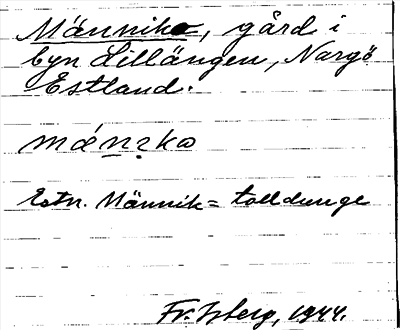 Männiko, gård i
byn Lillängen, Nargö
Estland.
Estn. Männik = talldunge
Fr. Isberg, 1944.